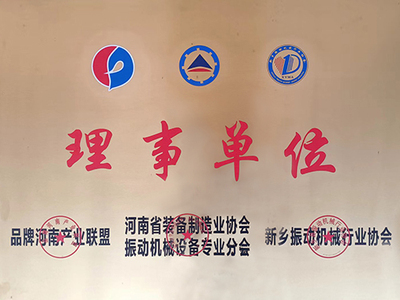 理事单位
品牌河南产业联盟
河南省装备制造业协会
振动机械设备专业分会
新乡振动机械行业协会